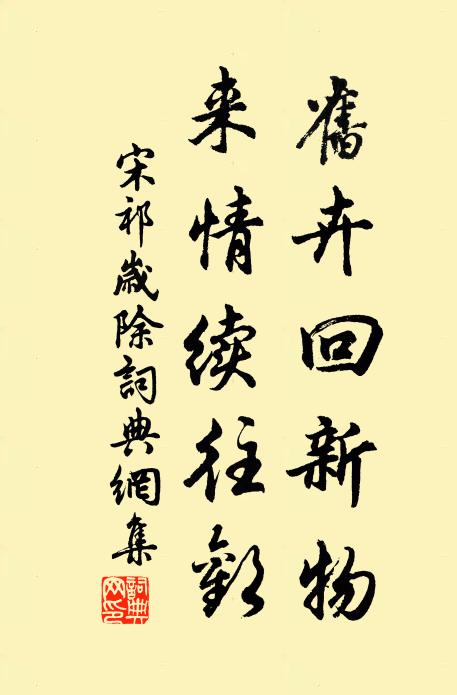 舊卉回新物
来情續往歡
宋祁歲除詞典網集
詞典网印